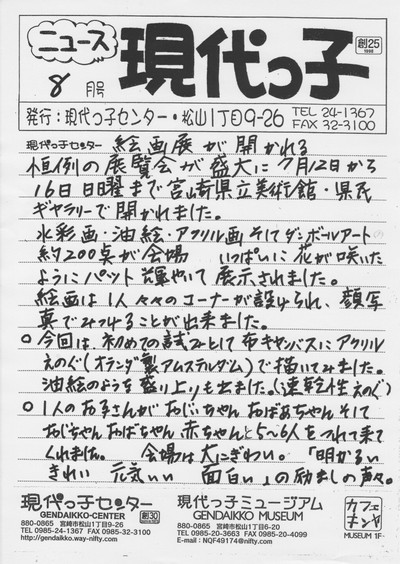 ニュース
現代っ子
創25
1998
8月号
発行:現代っ子センター・松山1丁目9-26 TEL 24-1367
FAX 32-3100
現代っ子センター 絵画展が開かれる
恒例の展覧会が盛大に7月12日から
16日日曜まで宮崎県立美術館・県民
ギャラリーで開れました。
水彩画・油絵・アクリル画そしてダンボールアートの
約200点が会場 いっぱいに花が咲いた
ようにパット輝やいて展示されました。
絵画は1人々々のコーナーが設けられ、顔写
真でみつけることが出来ました。
○今回は、初めての試みとして布キャンバスにアクリル
えのぐ(オランダ製アムステルダム)で描いてみました。
油絵のような盛り上りも出ました。(速乾性えのぐ)
○1人のお子さんがおじいちゃん おばあちゃん そして
おじちゃん おばちゃん 赤ちゃんと5〜6人をつれて来て
くれました。 会場は大にぎわい。 「明かるい
きれい 元気いい 面白い」の励ましの声々。
現代っ子センター
GENDAIKKO-CENTER 創30
880-0865 宮崎市松山1丁目9-26
TEL 0985-24-1367 FAX 0985-32-3100
http://gendaikko.way-nifty.com/
現代っ子ミュージアム
GENDAIKKO MUSEUM
880-0865 宮崎市松山1丁目6-20
TEL 0985-20-3663 FAX 0985-20-4099
E-mail : NQF49174@nifty.com
カフェ
MUSEUM 1F